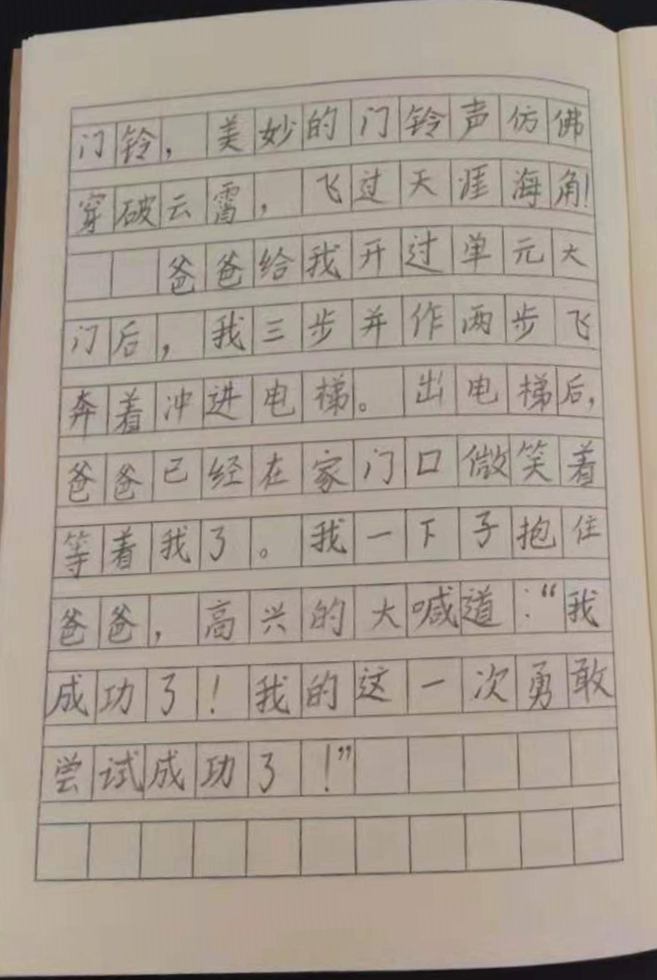 门铃，美妙的门铃声仿佛
穿破云霄，飞过天涯海角！
爸爸给我开过单元大
门后，我三步并作两步飞
奔着冲进电梯。出电梯后，
爸爸已经在家门口微笑着
等着我了。我一下子抱住
爸爸，高兴的大喊道：“我
成功了！我的这一次勇敢
尝试成功了！”